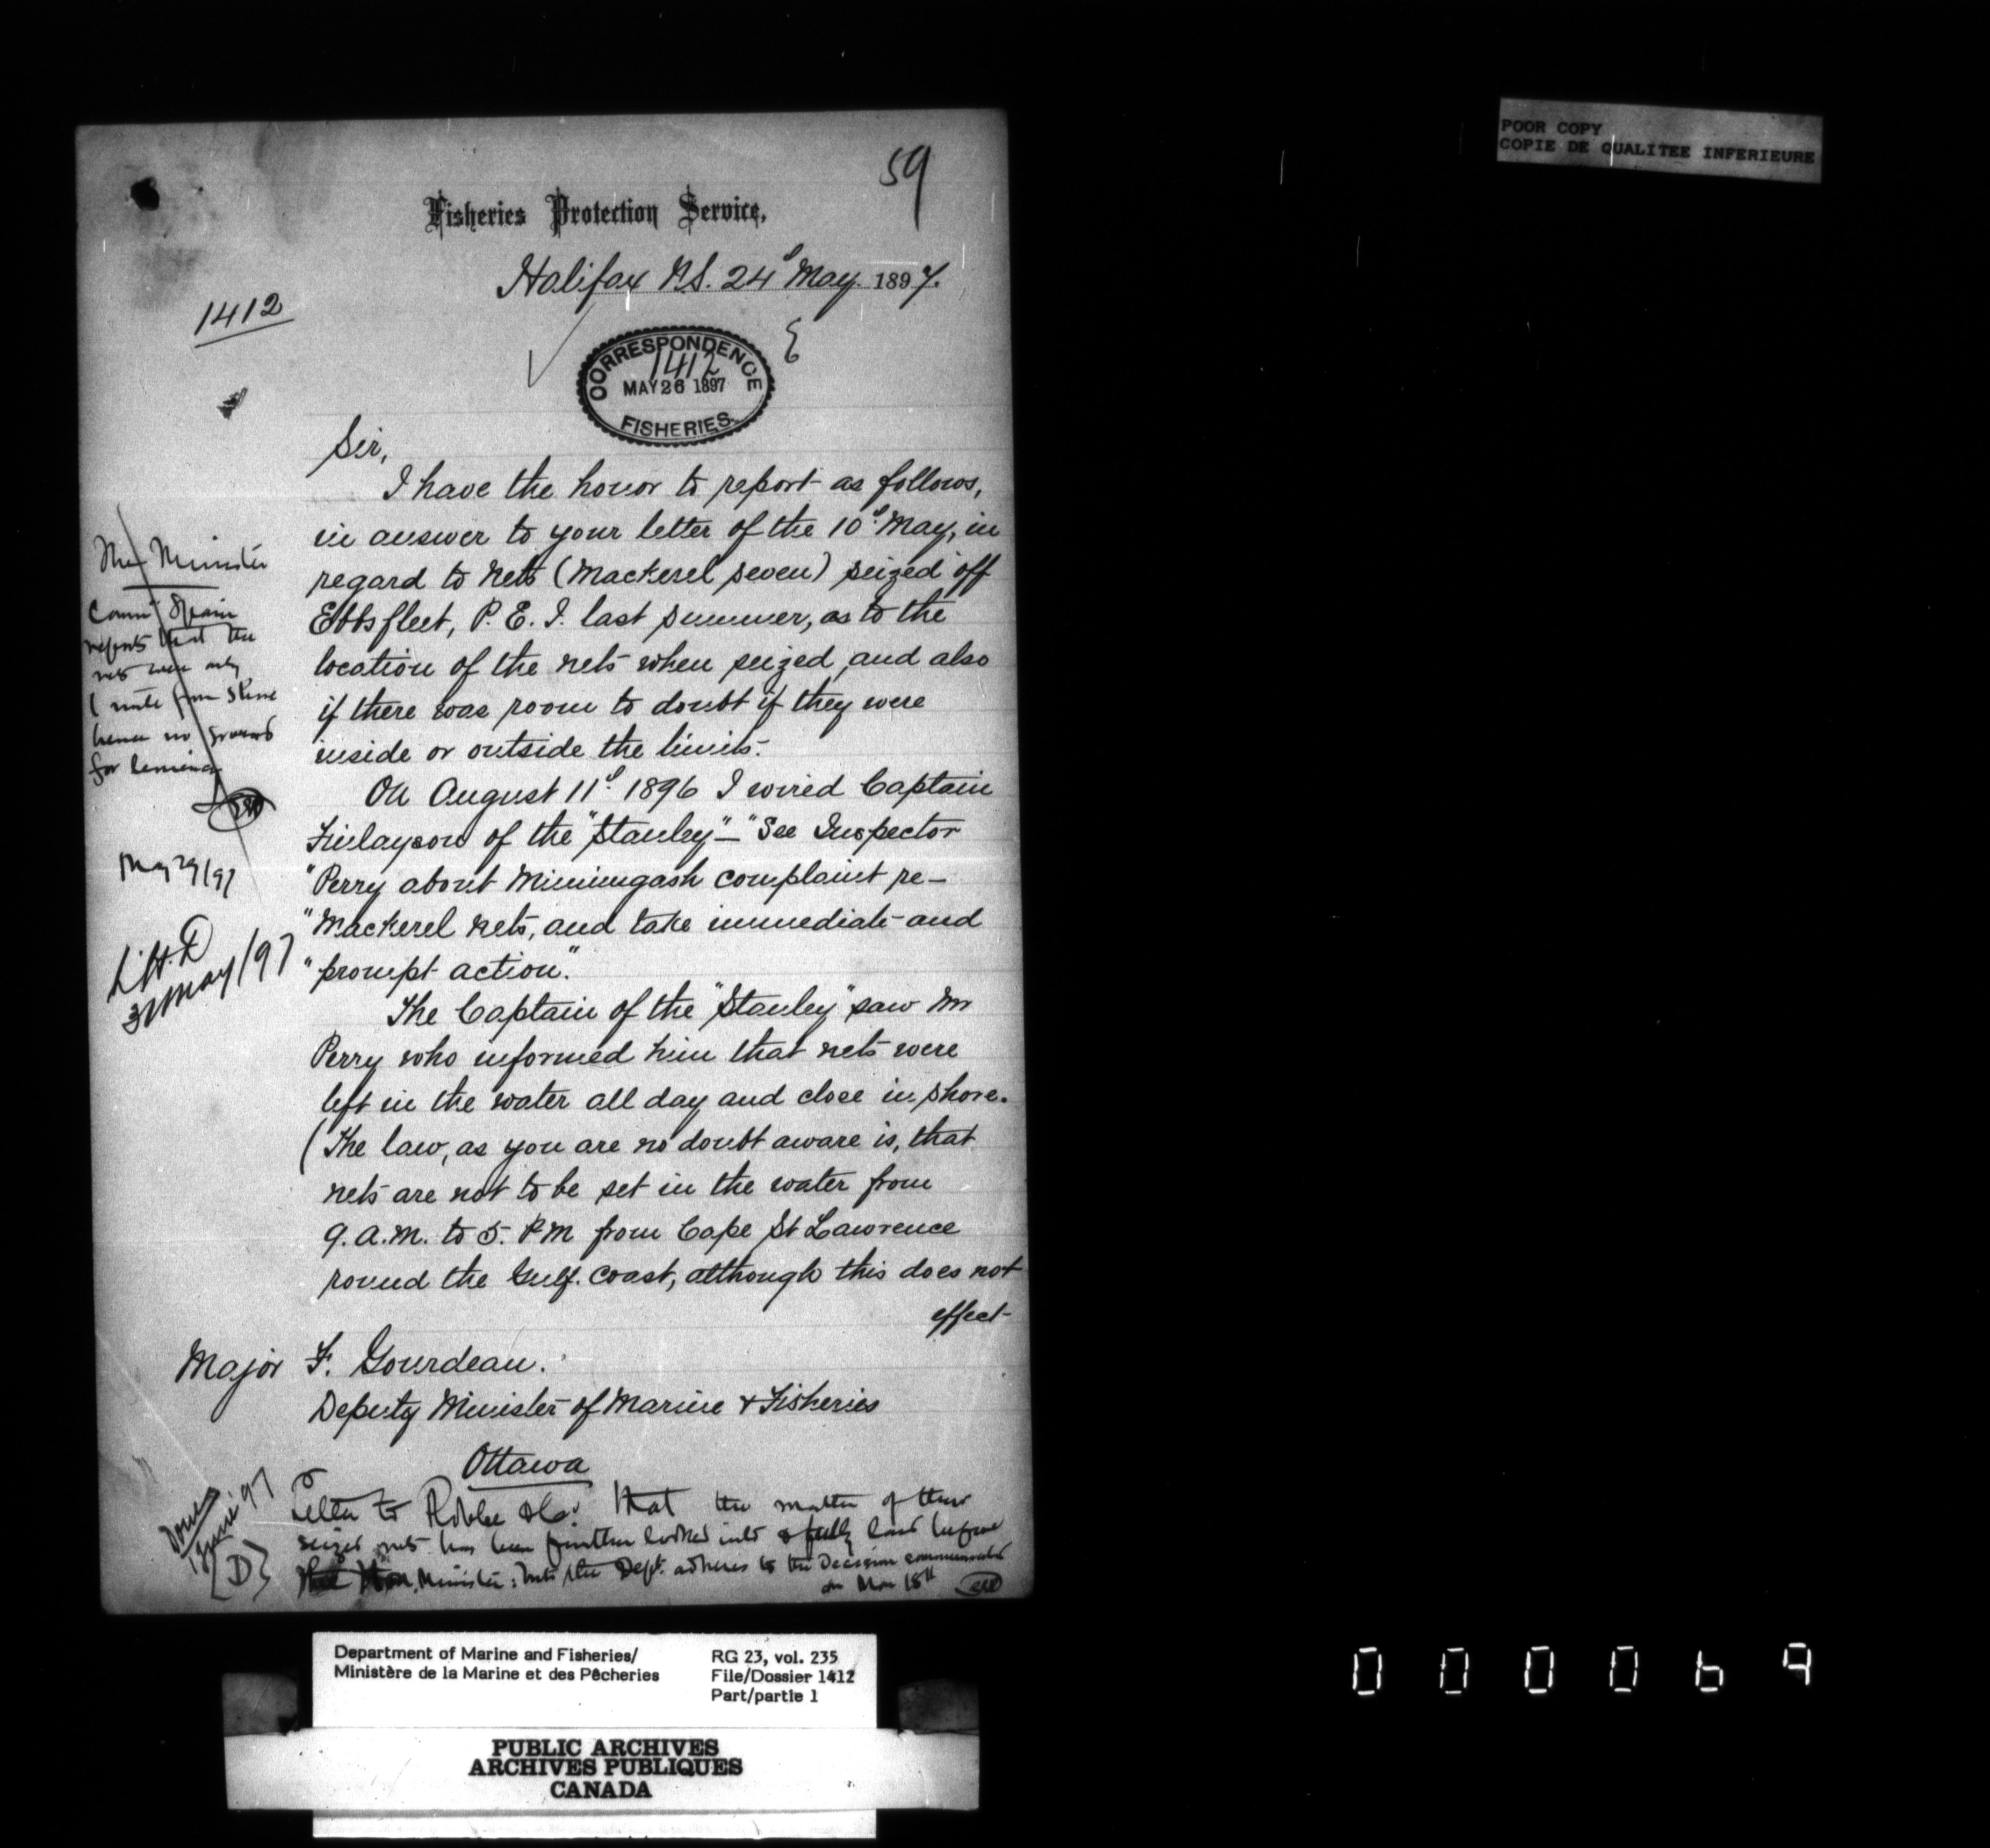 POOR COPY
COPIE DE QUALITEE INFERIEURE
59
Fisheries Protection Service,
Halifax N.S. 24th May. 1897.
1412
CORRESPONDENCE
1412
MAY 26 1897
FISHERIES.
Sir,
I have the honor to report as follows,
in answer to your letter of the 10th May, in
regard to nets (Mackerel seven) seized off
Ebbsfleet, P. E. I. last summer, as to the
location of the nets when seized, and also
if there was room to doubt if they were
inside or outside the limits.
On August 11th 1896 I wired Captain
Finlayson of the "Stanley" — "See Inspector
"Perry about Miminigash complaint re—
"Mackerel nets, and take immediate and
"prompt action".
The Captain of the "Stanley" saw Mr
Perry who informed him that nets were
left in the water all day and close in shore.
(The law, as you are no doubt aware is, that
nets are not to be set in the water from
9. A.M. to 5. P.M from Cape St Lawrence
round the Gulf. Coast, although this does not
effect
Major F. Gourdeau.
Deputy Minister of Marine & Fisheries
Ottawa
The Minister
Comr Spain
reports that the
nets were only
1 mile from Shore
hence no grounds
for
May 29/97
31 May/97
Done
1 June 97
[D]
Letter to & Co. that the matter of their
seized nets has been further looked into & fully laid before
Hon. Minister: but the Dept. adheres to the Decision communicated
on 18th
Department of Marine and Fisheries/
Ministère de la Marine et des Pêcheries
RG 23, vol. 235
File/Dossier 1412
Part/partie 1
PUBLIC ARCHIVES
ARCHIVES PUBLIQUES
CANADA
000069